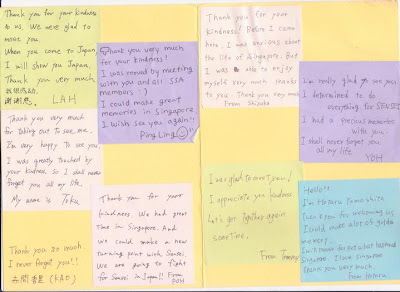 Thank you for your kindness
to us. We were glad to
meet you.
When you come to Japan,
I will show you Japan.
Thank you very much.
我很感动.
谢谢您.
LAH
Thank you very much
for your kindness!
I was moved by meeting
with you and all SSA
members :)
I could make great
memories in Singapore.
I wish see you again!!
PingLing
Thank you very much
for taking out to see me.
I'm very happy to see you.
I was greatly touched by
your kindness. So I shall never
forget you all my life.
My name is Toku
Thank you so much.
I never forget you!!
(KAE)
Thank you for your
kindness. We had great
time in Singapore. And
we could make a new
turning point with Sensei.
We are going to fight
for Sensei in Japan!! From
POH
Thank you for your
kindness! Before I came
here, I was anxious about
the life of Singapore. But
I was able to enjoy
myself very much thanks
to you. Thank you very much
From Shizuka
I'm really glad to see you.
I determined to do
everything for SENSEI
I had a precious memories
with you.
I shall never forget you
all my life.
YBH
I was glad to meet you!
I appreciate you kindness.
Let's get together again
sometime.
From Tommy
Hello!!
I'm Hotaru Yamashita
Thank you for welcoming us
I could make alot of golden
memory.
I will never forget what I learned
Singapore. I love singapore
Thank you very much
From Hotaru